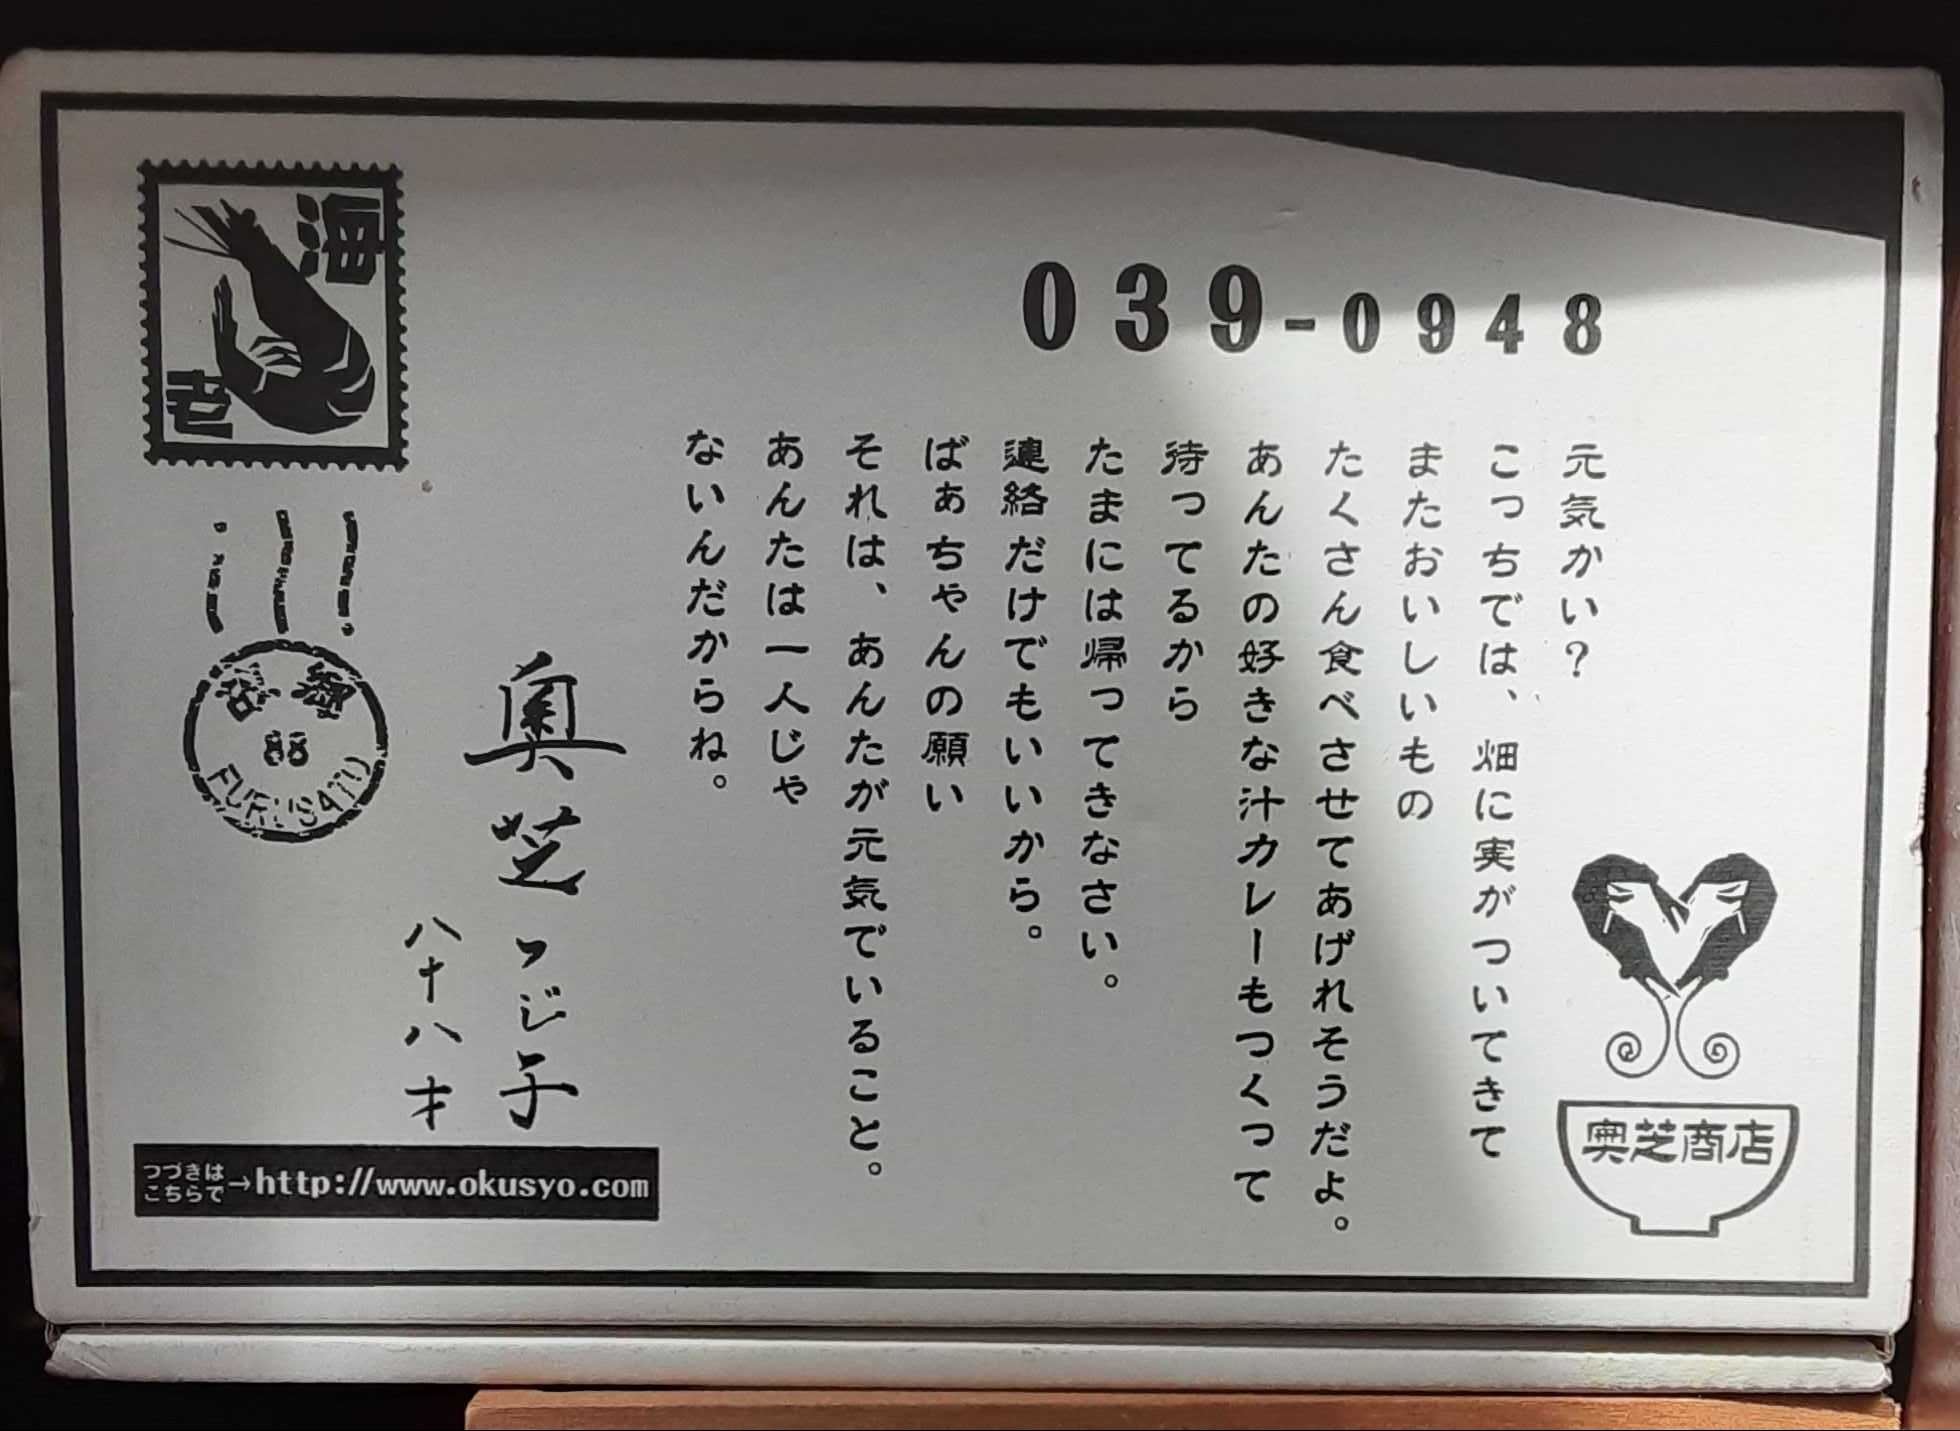 海老
039-0948
元気かい?
こっちでは、畑に実がついてきて
またおいしいもの
たくさん食べさせてあげれそうだよ。
あんたの好きな汁カレーもつくって
待ってるから
たまには帰ってきなさい。
連絡だけでもいいから。
ばぁちゃんの願い
それは、あんたが元気でいること。
あんたは一人じゃ
ないんだからね。
奥芝フじ子
八十八才
奥芝商店
88
FURUSATO
つづきは
こちらで
→http://www.okusyo.com